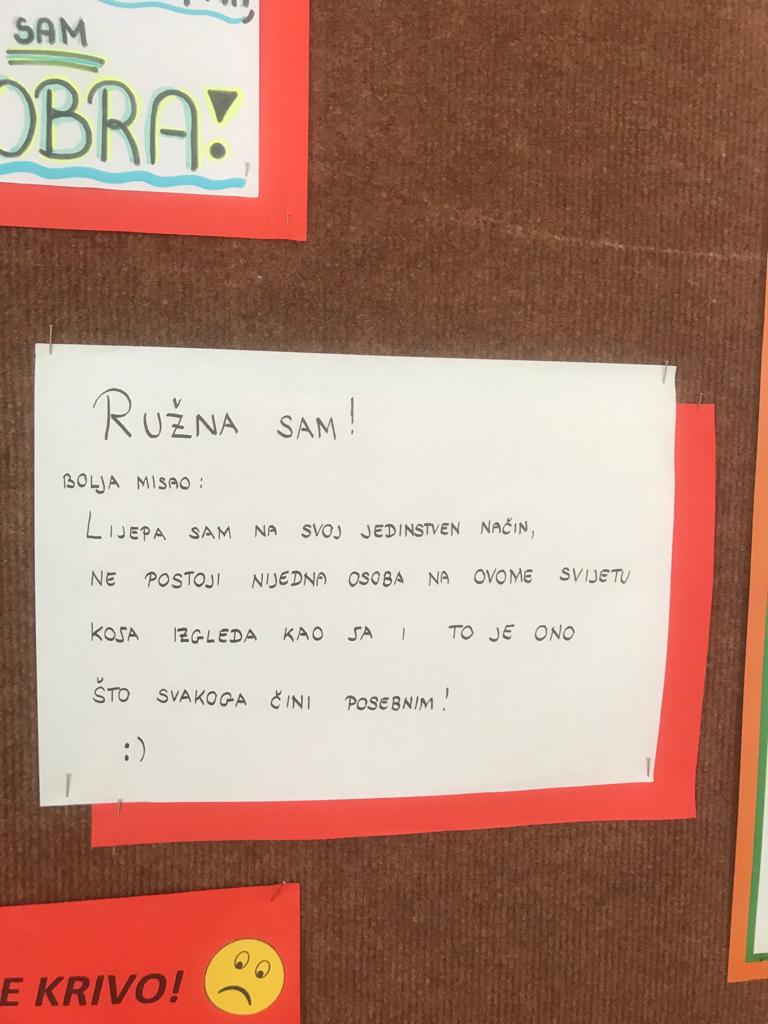 SAM
OBRA!
RUŽNA SAM!
BOLJA MISAO:
LIJEPA SAM NA SVOJ JEDINSTVEN NAČIN,
NE POSTOJI NIJEDNA OSOBA NA OVOME SVIJETU
KOJA IZGLEDA KAO JA I TO JE ONO
ŠTO SVAKOGA ČINI POSEBNIM!
:)
E KRIVO!